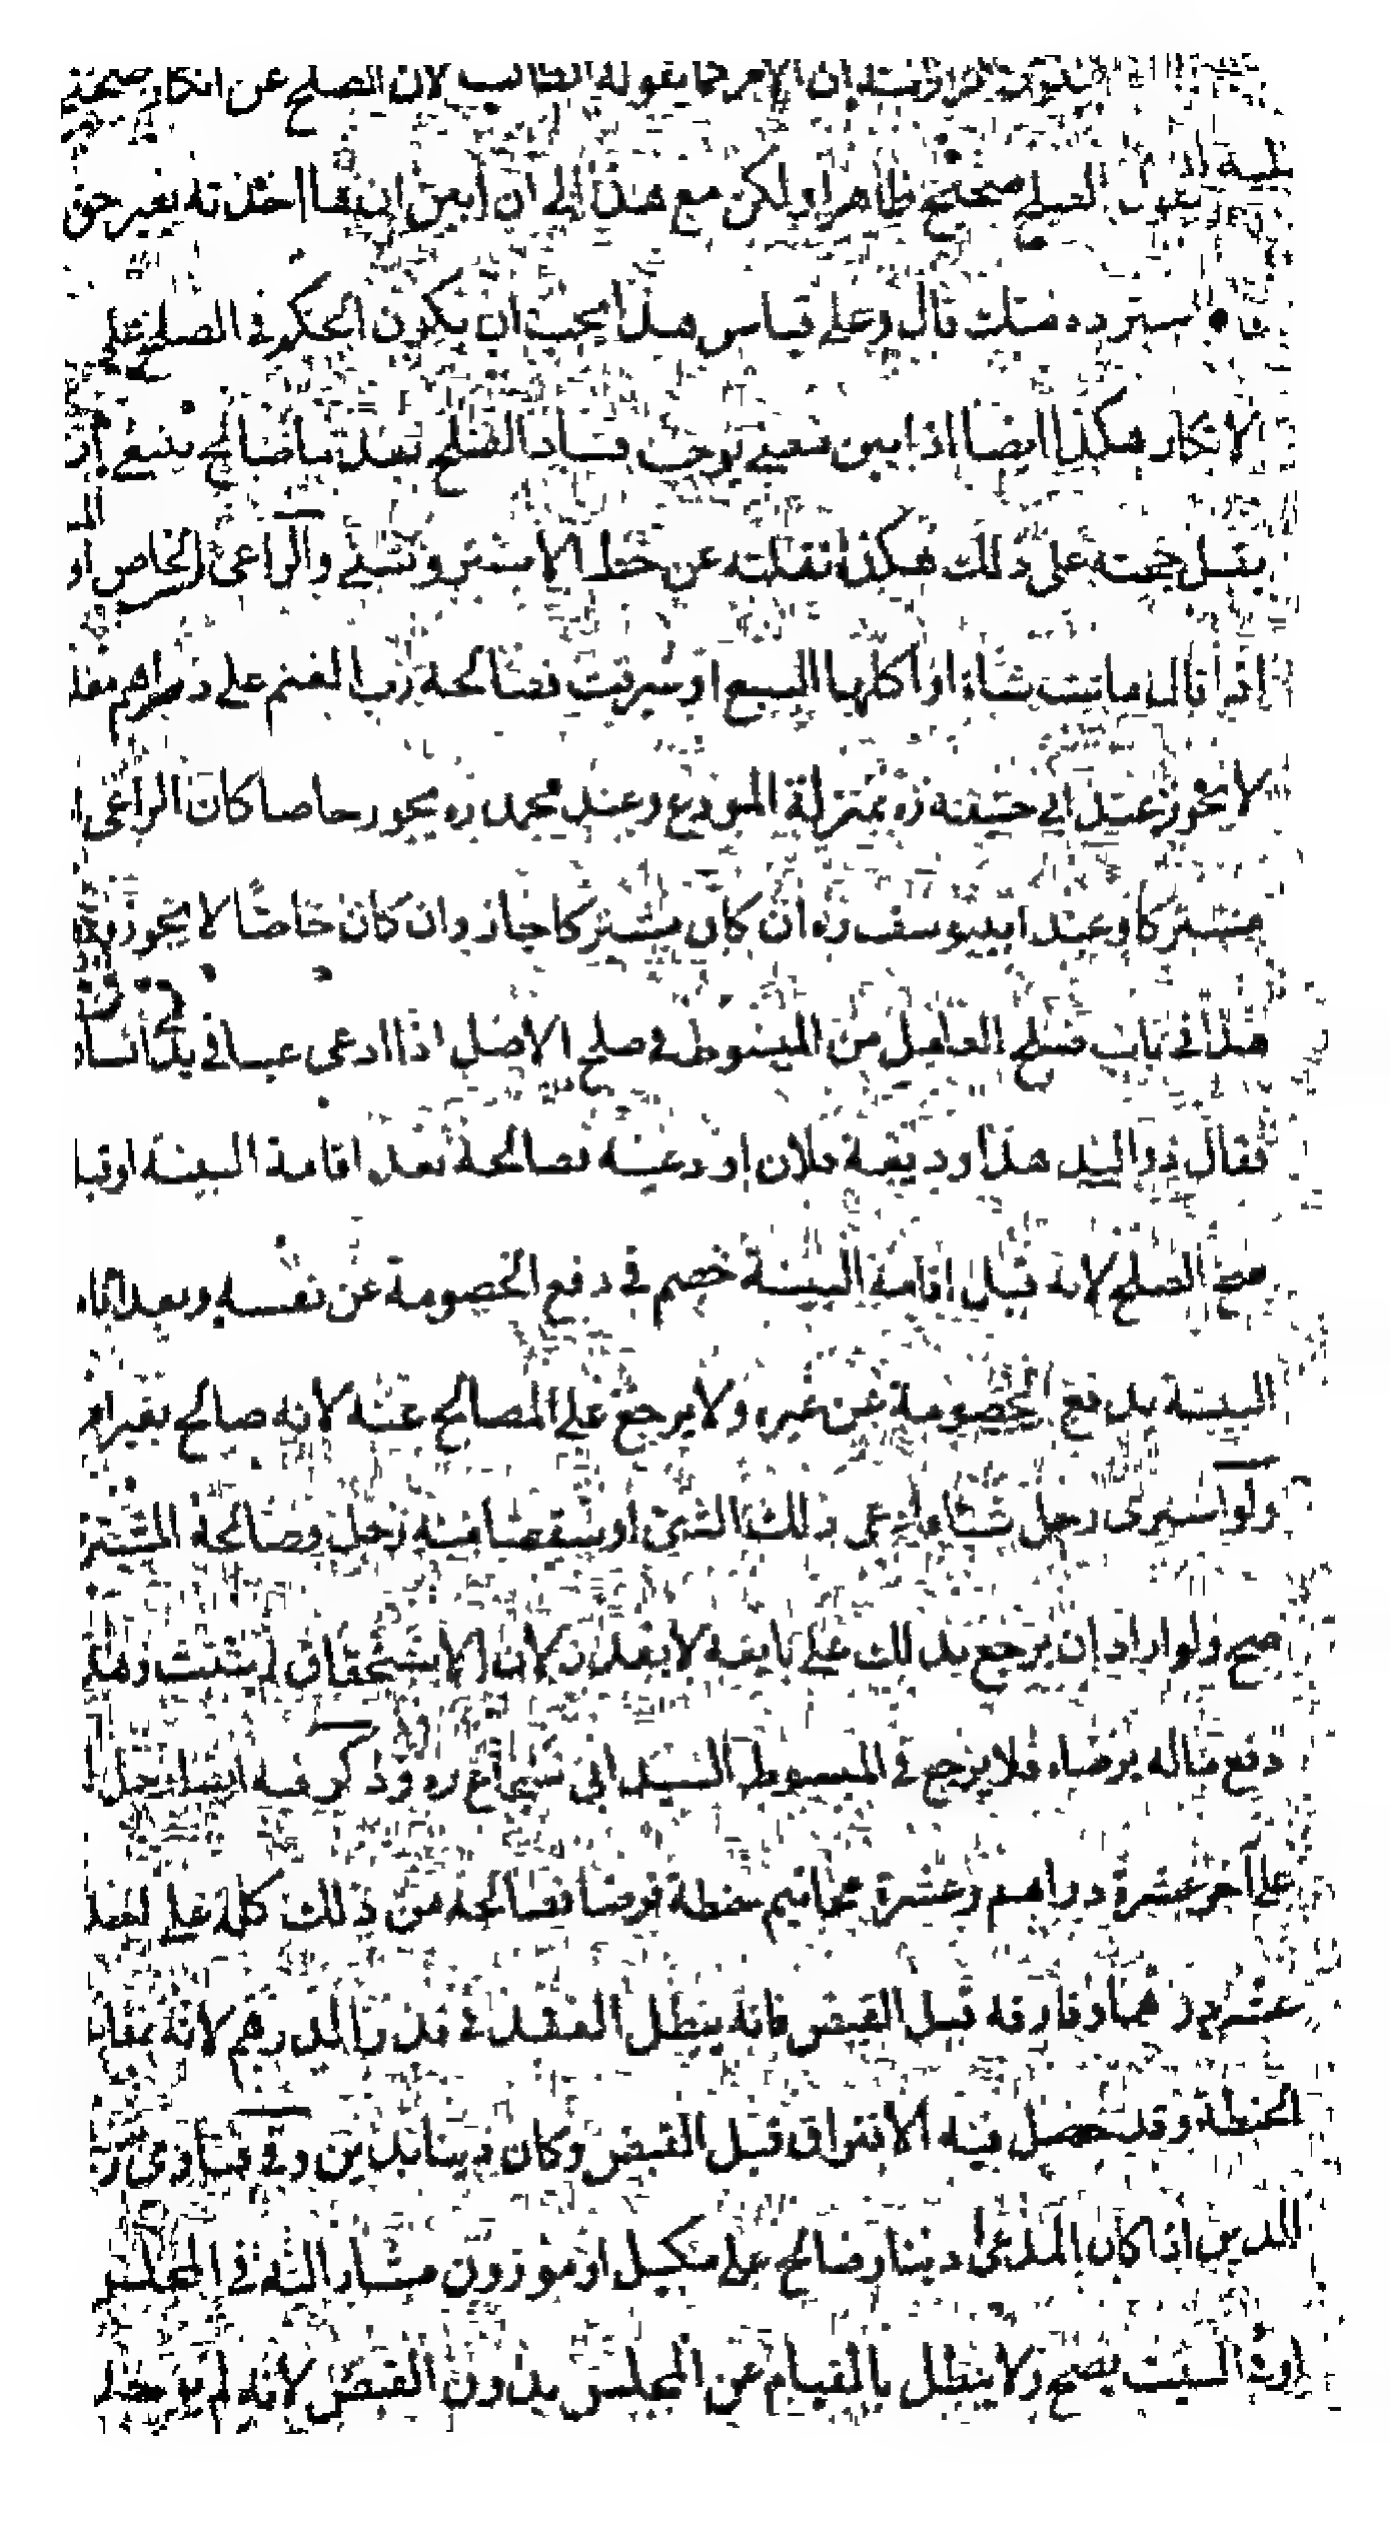 ان الامر كما يقوله الطالب لان الصلح عن انكار صحته
يقول الصلح صحيح ظاهرا ولكن مع هذا الى ان ابين انها اخذته بغير حق
استرده منك قال وعلى قياس هذا يجب ان يكون الحكم في الصلح على
الانكار هكذا ايضا اذا بين معنى يوجب فساد الصلح بعد ما صالح ينبغي ان
يقبل حجته على ذلك هكذا نقلته عن خط الاستروشنى والراعى الخاص او
اذا قال ماتت شاة او اكلها السبع او سرقت فصالحه رب الغنم على دراهم
لا يجوز عند ابي حنيفة ره بمنزلة المودع وعند محمد ره يجوز خاصا كان الراعى
مشتركا وعند ابيوسف ره ان كان مشتركا جاز وان كان خاصا لا يجوز
هذا في باب صلح العامل من المبسوط في صلح الاصل اذا ادعى عبدا في يد انسان
فقال ذو اليد هذا وديعة فلان اودعنيه فصالحه بعد اقامة البينة او قبل
صح الصلح لانه قبل اقامة البينة خصم في دفع الخصومة عن نفسه وبعد
البينة يدفع الخصومة عن غيره ولا يرجع على المصالح عنه لانه صالح بغير امر
ولو اشترى رجل شيئا فادعى ذلك الشئ او شقصا منه رجل وصالحه المشترى
صح ولو اراد ان يرجع بذلك على بايعه لا يقدر لان الاستحقاق لم يثبت
دفع ماله برضاه فلا يرجع في المبسوط السيد ابى شجاع ره وذكر فيه
على آخر عشرة دراهم وعشرة مخاتيم حنطة قرضا فصالحه من ذلك كله على احد
عشر درهما وفارقه قبل القبض فانه يبطل العقد في قدر الدرهم لانه
الحنطة وقد حصل فيه الافتراق قبل القبض وكان دينا بدين وفي فتاوى
الدين اذا كان المدعى دينا وصالح على مكيل او موزون مشار اليه في المجلس
او في البيت يصح ولا يبطل بالقيام عن المجلس بدون القبض لانه لم